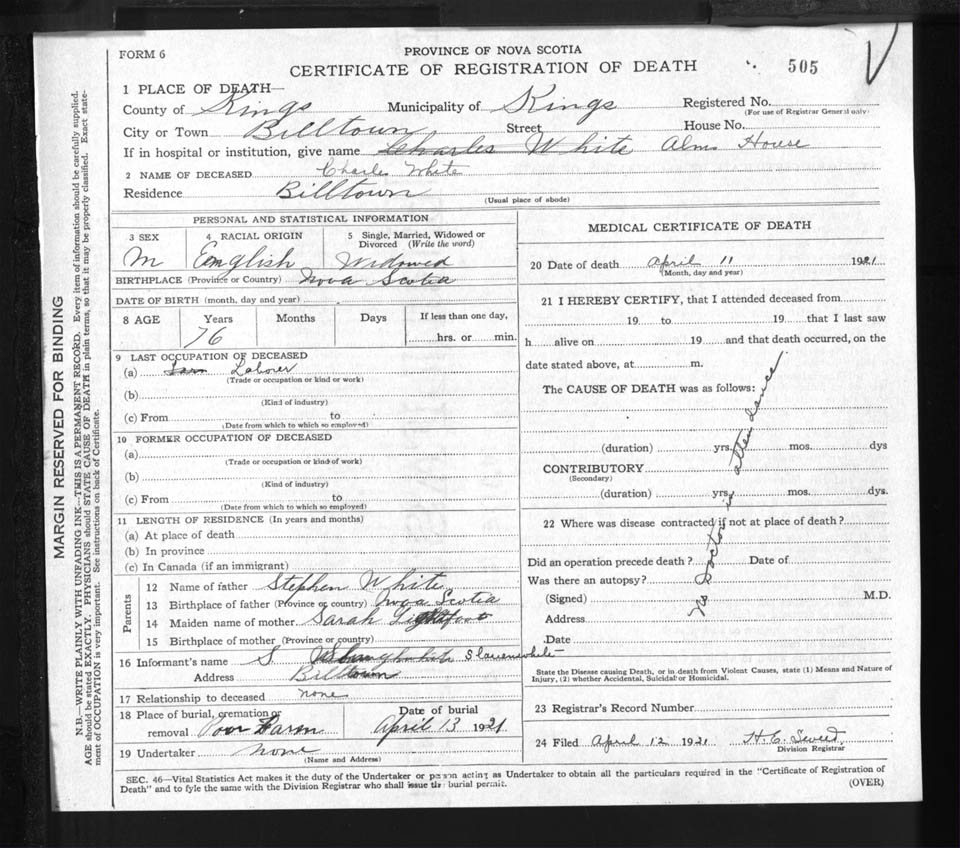 FORM 6
PROVINCE OF NOVA SCOTIA
CERTIFICATE OF REGISTRATION OF DEATH
505
1 PLACE OF DEATH—
County of Kings Municipality of Kings Registered No.
(For use of Registrar General only)
City or Town Billtown Street House No.
If in hospital or institution, give name Charles White Alms House
2 NAME OF DECEASED Charles White
Residence Billtown
(Usual place of abode)
PERSONAL AND STATISTICAL INFORMATION
3 SEX 4 RACIAL ORIGIN 5 Single, Married, Widowed or Divorced (Write the word)
M English Widowed
BIRTHPLACE (Province or Country) Nova Scotia
DATE OF BIRTH (month, day and year)
8 AGE Years Months Days If less than one day,
76 hrs. or min.
9 LAST OCCUPATION OF DECEASED
(a) Farm Laborer
(Trade or occupation or kind or work)
(b)
(Kind of industry)
(c) From to
(Date from which to which so employed)
10 FORMER OCCUPATION OF DECEASED
(a)
(Trade or occupation or kind of work)
(b)
(Kind of industry)
(c) From to
(Date from which to which so employed)
11 LENGTH OF RESIDENCE (In years and months)
(a) At place of death
(b) In province
(c) In Canada (if an immigrant)
Parents
12 Name of father Stephen White
13 Birthplace of father (Province or country) Nova Scotia
14 Maiden name of mother Sarah
15 Birthplace of mother (Province or country)
16 Informant's name S
Address Billtown
17 Relationship to deceased none
18 Place of burial, cremation or removal Poor Farm
Date of burial
April 13 1921
19 Undertaker none
(Name and Address)
MEDICAL CERTIFICATE OF DEATH
20 Date of death April 11 1921
(Month, day and year)
21 I HEREBY CERTIFY, that I attended deceased from
19 to 19 that I last saw
h alive on 19 and that death occurred, on the
date stated above, at m.
The CAUSE OF DEATH was as follows:
(duration) yrs. mos. dys
CONTRIBUTORY
(Secondary)
(duration) yrs. mos. dys.
No Doctor in attendance
22 Where was disease contracted if not at place of death?
Did an operation precede death? Date of
Was there an autopsy?
(Signed) M.D.
Address
Date
State the Disease causing Death, or in death from Violent Causes, state (1) Means and Nature of
Injury, (2) whether Accidental, Suicidal or Homicidal.
23 Registrar's Record Number
24 Filed April 12 1921 H. C.
Division Registrar
SEC. 46—Vital Statistics Act makes it the duty of the Undertaker or person acting as Undertaker to obtain all the particulars required in the "Certificate of Registration of
Death" and to fyle the same with the Division Registrar who shall issue the burial permit.
(OVER)
MARGIN RESERVED FOR BINDING
N.B.—WRITE PLAINLY WITH UNFADING INK—THIS IS A PERMANENT RECORD. Every item of information should be carefully supplied.
AGE should be stated EXACTLY. PHYSICIANS should STATE CAUSE OF DEATH in plain terms, so that it may be properly classified. Exact state-
ment of OCCUPATION is very important. See instructions on back of Certificate.